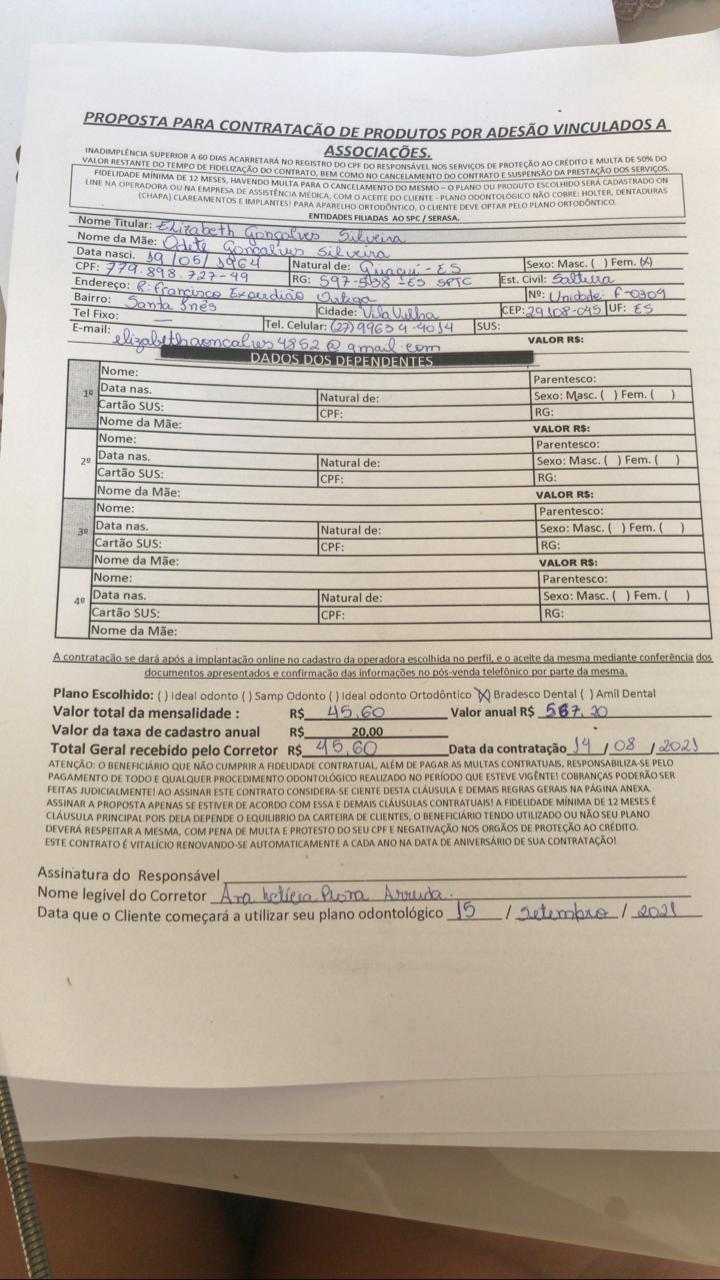 PROPOSTA PARA CONTRATAÇÃO DE PRODUTOS POR ADESÃO VINCULADOS A
ASSOCIAÇÕES.
INADIMPLÊNCIA SUPERIOR A 60 DIAS ACARRETARÁ NO REGISTRO DO CPF DO RESPONSÁVEL NOS SERVIÇOS DE PROTEÇÃO AO CRÉDITO E MULTA DE 50% DO
VALOR RESTANTE DO TEMPO DE FIDELIZAÇÃO DO CONTRATO, BEM COMO NO CANCELAMENTO DO CONTRATO E SUSPENSÃO DA PRESTAÇÃO DOS SERVIÇOS.
FIDELIDADE MÍNIMA DE 12 MESES, HAVENDO MULTA PARA O CANCELAMENTO DO MESMO – O PLANO OU PRODUTO ESCOLHIDO SERÁ CADASTRADO ON
LINE NA OPERADORA OU NA EMPRESA DE ASSISTÊNCIA MÉDICA, COM O ACEITE DO CLIENTE - PLANO ODONTOLÓGICO NÃO COBRE: HOLTER, DENTADURAS
(CHAPA) CLAREAMENTOS E IMPLANTES! PARA APARELHO ORTODÔNTICO, O CLIENTE DEVE OPTAR PELO PLANO ORTODÔNTICO.
ENTIDADES FILIADAS AO SPC / SERASA.
Nome Titular: Elizabeth Gonçalves Silveira
Nome da Mãe: Odete Gonçalves Silveira
Data nasci. 19/05/1964 Natural de: Guaçuí-ES Sexo: Masc. ( ) Fem. (X)
CPF: 779.898.727-49 RG: 597-538-ES SPTC Est. Civil: Solteira
Endereço: R. Francisco Ortega Nº: Unidade: F-0304
Bairro: Santa Inês Cidade: Vila Velha CEP: 29108-045 UF: ES
Tel Fixo: — Tel. Celular: (27) 99634-4014 SUS:
E-mail: elizabethgoncalves4852@gmail.com VALOR R$:
DADOS DOS DEPENDENTES
1º Nome: Parentesco:
Data nas. Natural de: Sexo: Masc. ( ) Fem. ( )
Cartão SUS: CPF: RG:
Nome da Mãe: VALOR R$:
2º Nome: Parentesco:
Data nas. Natural de: Sexo: Masc. ( ) Fem. ( )
Cartão SUS: CPF: RG:
Nome da Mãe: VALOR R$:
3º Nome: Parentesco:
Data nas. Natural de: Sexo: Masc. ( ) Fem. ( )
Cartão SUS: CPF: RG:
Nome da Mãe: VALOR R$:
4º Nome: Parentesco:
Data nas. Natural de: Sexo: Masc. ( ) Fem. ( )
Cartão SUS: CPF: RG:
Nome da Mãe:
A contratação se dará após a implantação online no cadastro da operadora escolhida no perfil, e o aceite da mesma mediante conferência dos
documentos apresentados e confirmação das informações no pós-venda telefônico por parte da mesma.
Plano Escolhido: ( ) Ideal odonto ( ) Samp Odonto ( ) Ideal odonto Ortodôntico (X) Bradesco Dental ( ) Amil Dental
Valor total da mensalidade : R$ 45,60 Valor anual R$ 567,20
Valor da taxa de cadastro anual R$ 20,00
Total Geral recebido pelo Corretor R$ 45,60 Data da contratação 14 / 08 / 2021
ATENÇÃO: O BENEFICIÁRIO QUE NÃO CUMPRIR A FIDELIDADE CONTRATUAL, ALÉM DE PAGAR AS MULTAS CONTRATUAIS, RESPONSABILIZA-SE PELO
PAGAMENTO DE TODO E QUALQUER PROCEDIMENTO ODONTOLÓGICO REALIZADO NO PERÍODO QUE ESTEVE VIGÊNTE! COBRANÇAS PODERÃO SER
FEITAS JUDICIALMENTE! AO ASSINAR ESTE CONTRATO CONSIDERA-SE CIENTE DESTA CLÁUSULA E DEMAIS REGRAS GERAIS NA PÁGINA ANEXA.
ASSINAR A PROPOSTA APENAS SE ESTIVER DE ACORDO COM ESSA E DEMAIS CLÁUSULAS CONTRATUAIS! A FIDELIDADE MÍNIMA DE 12 MESES É
CLÁUSULA PRINCIPAL POIS DELA DEPENDE O EQUILIBRIO DA CARTEIRA DE CLIENTES, O BENEFICIÁRIO TENDO UTILIZADO OU NÃO SEU PLANO
DEVERÁ RESPEITAR A MESMA, COM PENA DE MULTA E PROTESTO DO SEU CPF E NEGATIVAÇÃO NOS ORGÃOS DE PROTEÇÃO AO CRÉDITO.
ESTE CONTRATO É VITALÍCIO RENOVANDO-SE AUTOMATICAMENTE A CADA ANO NA DATA DE ANIVERSÁRIO DE SUA CONTRATAÇÃO!
Assinatura do Responsável
Nome legível do Corretor Ana Letícia Arruda
Data que o Cliente começará a utilizar seu plano odontológico 15 / setembro / 2021